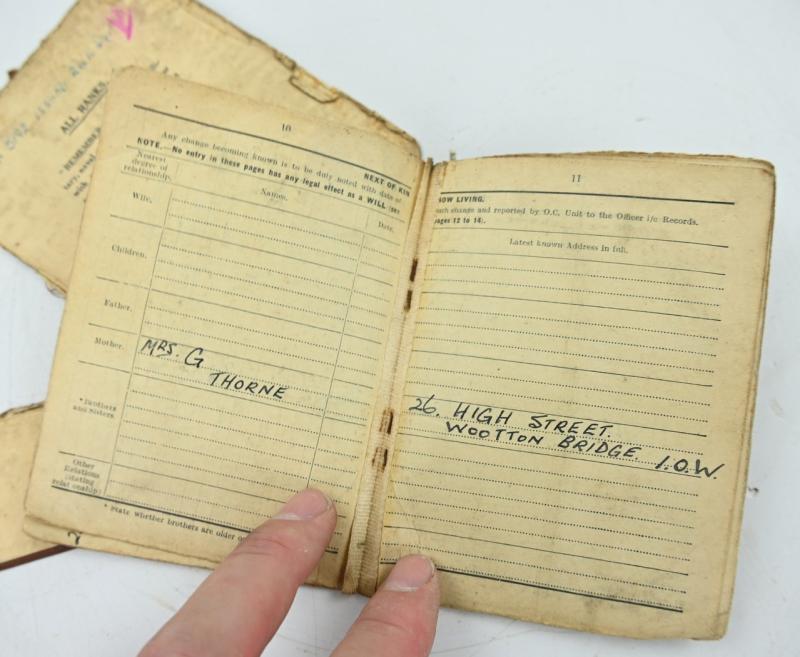 ALL RANKS
10
Any change becoming known is to be duly noted with date of
NEXT OF KIN
NOTE.—No entry in these pages has any legal effect as a WILL (see
Nearest degree of relationship.
Names.
Date.
Wife.
Children.
Father.
Mother.
MRS. G
THORNE
*Brothers and Sisters.
Other Relations (stating relationship)
* State whether brothers are older
11
NOW LIVING.
each change and reported by O.C. Unit to the Officer i/c Records.
pages 12 to 14).
Latest known Address in full.
26. HIGH STREET.
WOOTTON BRIDGE I.O.W.